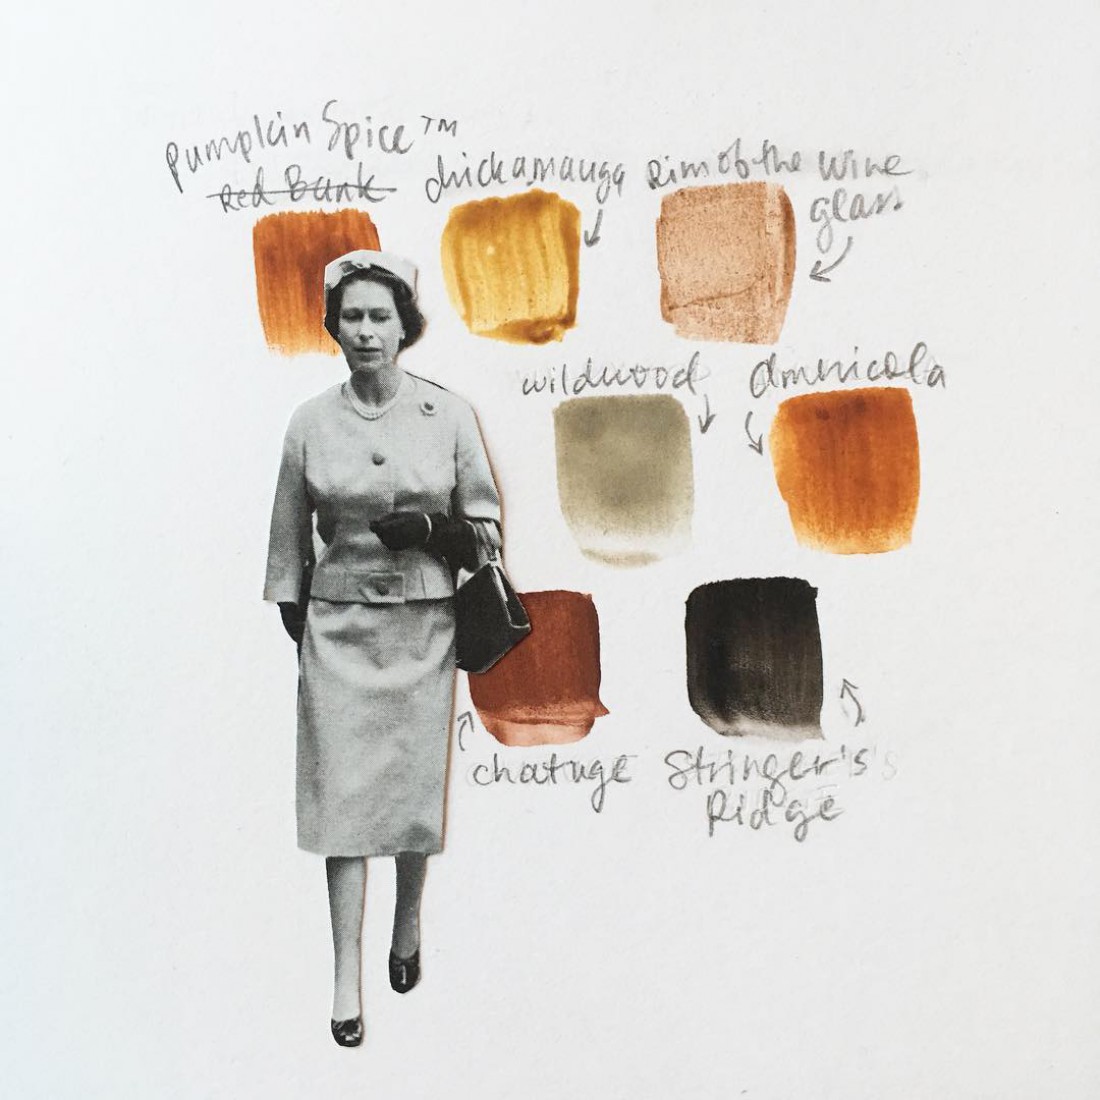 Pumpkin Spice™
Red Bank
chickamauga
Rim of the Wine
glass
wildwood
Americola
chatuge
Stringer's
Ridge